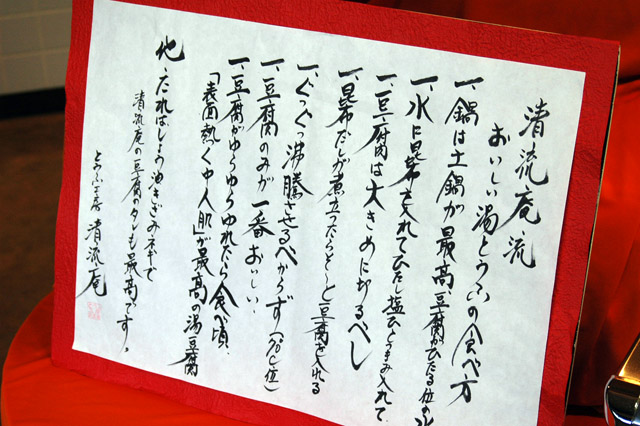 清流庵流
おいしい湯とうふの食べ方
一、鍋は土鍋が最高、豆腐がひたる位の水
一、水に昆布を入れてひたし塩ひとつまみ入れて
一、豆腐は大きめに切るべし
一、昆布だしが煮立ったらそーと豆腐を入れる
一、ぐつぐつ沸騰させるべからず
一、豆腐のみが一番おいしい
一、豆腐がゆらゆらゆれたら食べ頃
「表面熱く中人肌」が最高の湯豆腐
他、たれはしょう油きざみネギで
清流庵の豆腐のタレも最高です。
とうふ工房 清流庵